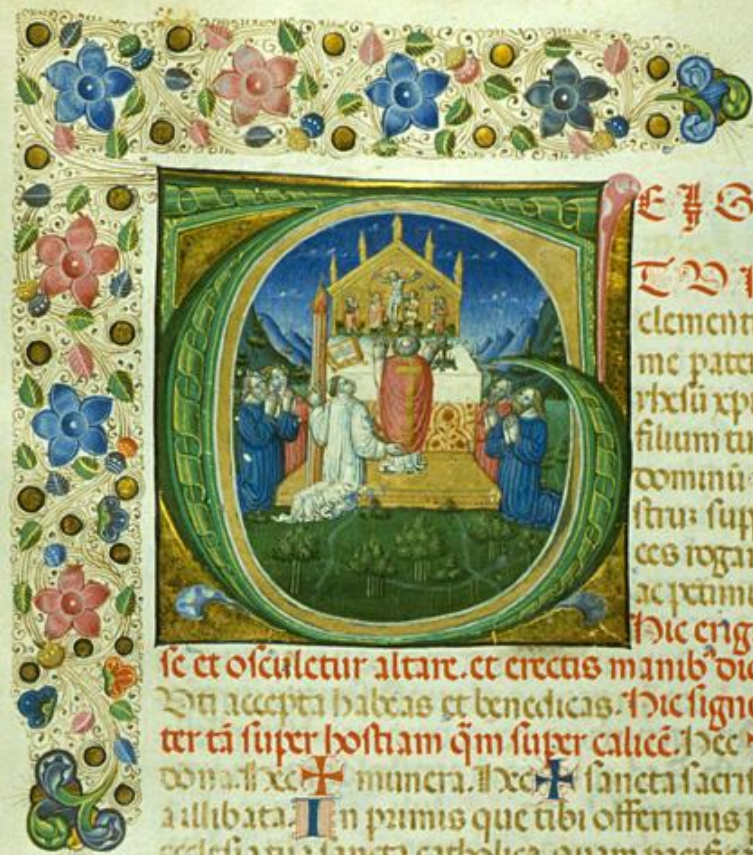 T E IG
TVR
clemen
me pate
rhesū xp
filium tu
dominū
strū sup
ces roga
ac petim
Hic erig
se et osculetur altare. et erectis manib⁹ di
Uti accepta habeas et benedicas. Hic sign
ter tā super hostiam q̄m super calicē. Hec
dona. Hec ✠ munera. Hec ✠ sancta sacri
a illibata. In primis que tibi offerimus p
ecclesia tua sancta catholica quam pacific